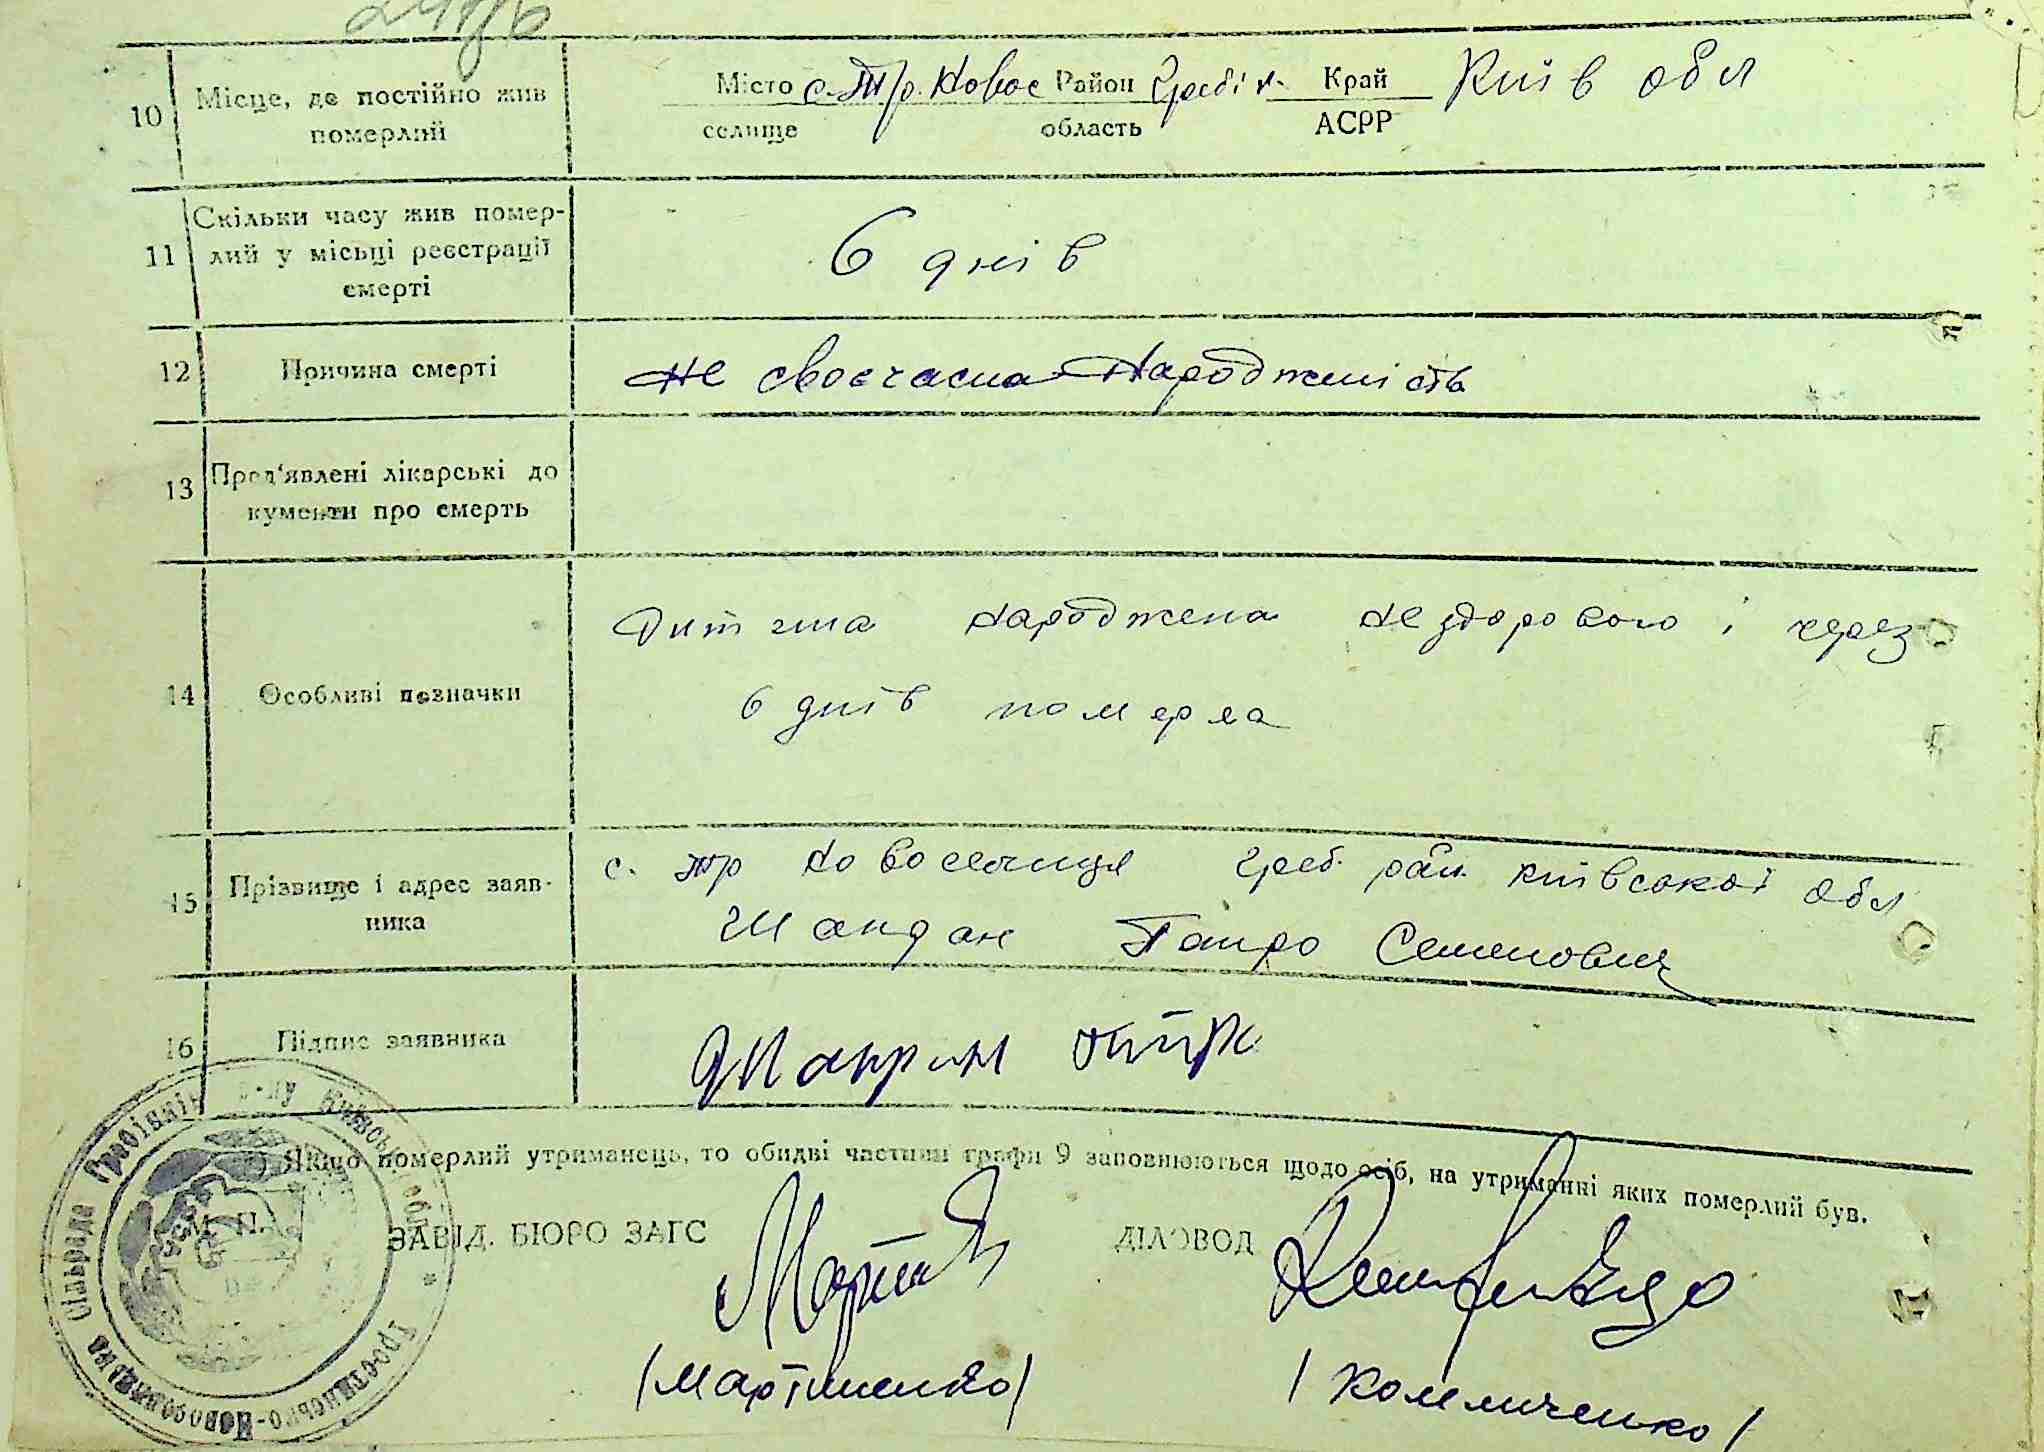 10 Місце, де постійно жив Місто с. Тр. Новос Район Гребін. Край Київ обл
померлий селище область АСРР
11 Скільки часу жив помер-
лий у місці реєстрації 6 днів
смерті
12 Причина смерті не своєчасна народженість
13 Пред'явлені лікарські до
кументи про смерть
Дитина народжена нездоровою і через
14 Особливі позначки 6 днів померла
с. Тр Новоселиця Греб. рай. Київської обл
15 Прізвище і адрес заяв-
ника Шандан Петро Семенович
16 Підпис заявника
*) Якщо померлий утриманець, то обидві частини графи 9 заповнюються щодо осіб, на утриманні яких померлий був.
М. П. ЗАВІД. БЮРО ЗАГС ДІЛОВОД
/Мартиненко/ /Комличенко/
Тростинсько-Новоселицька Сільрада Гребінків р-ну Київської обл.